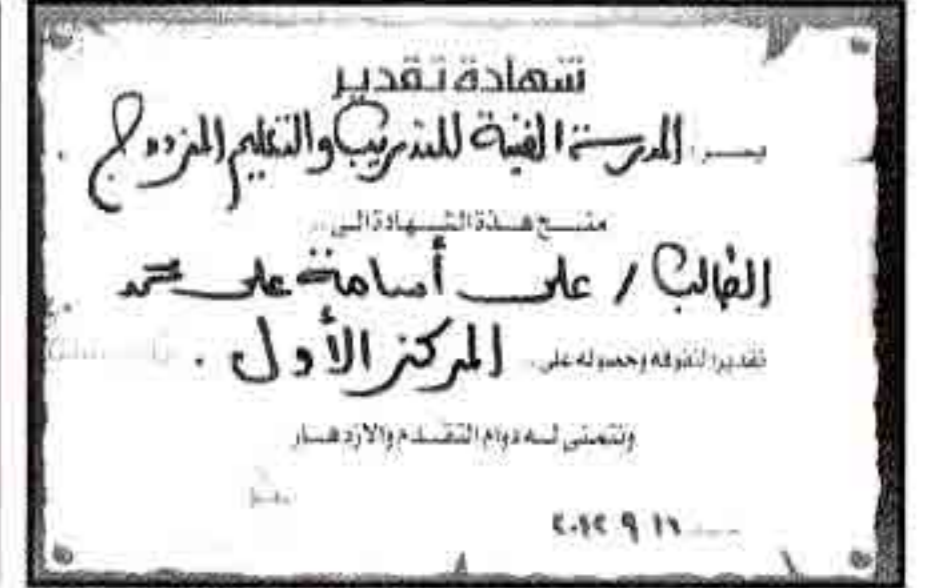 شهادة تقدير
يسر المدرسة الفنية للتدريب والتعليم المزدوج
منح هذة الشهادة الى ..
الطالب / على أسامة على محمد
تقديرا لتفوقه وحصوله على . المركز الأول .
ونتمنى له دوام التقدم والازدهار
٢٠١٢ ٩